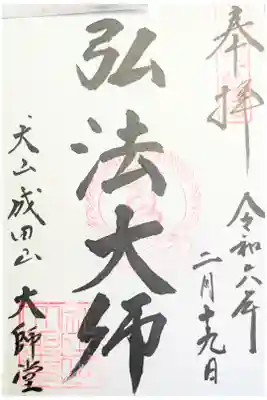 奉拝
令和六年
二月十九日
弘法大師
犬山成田山
大師堂